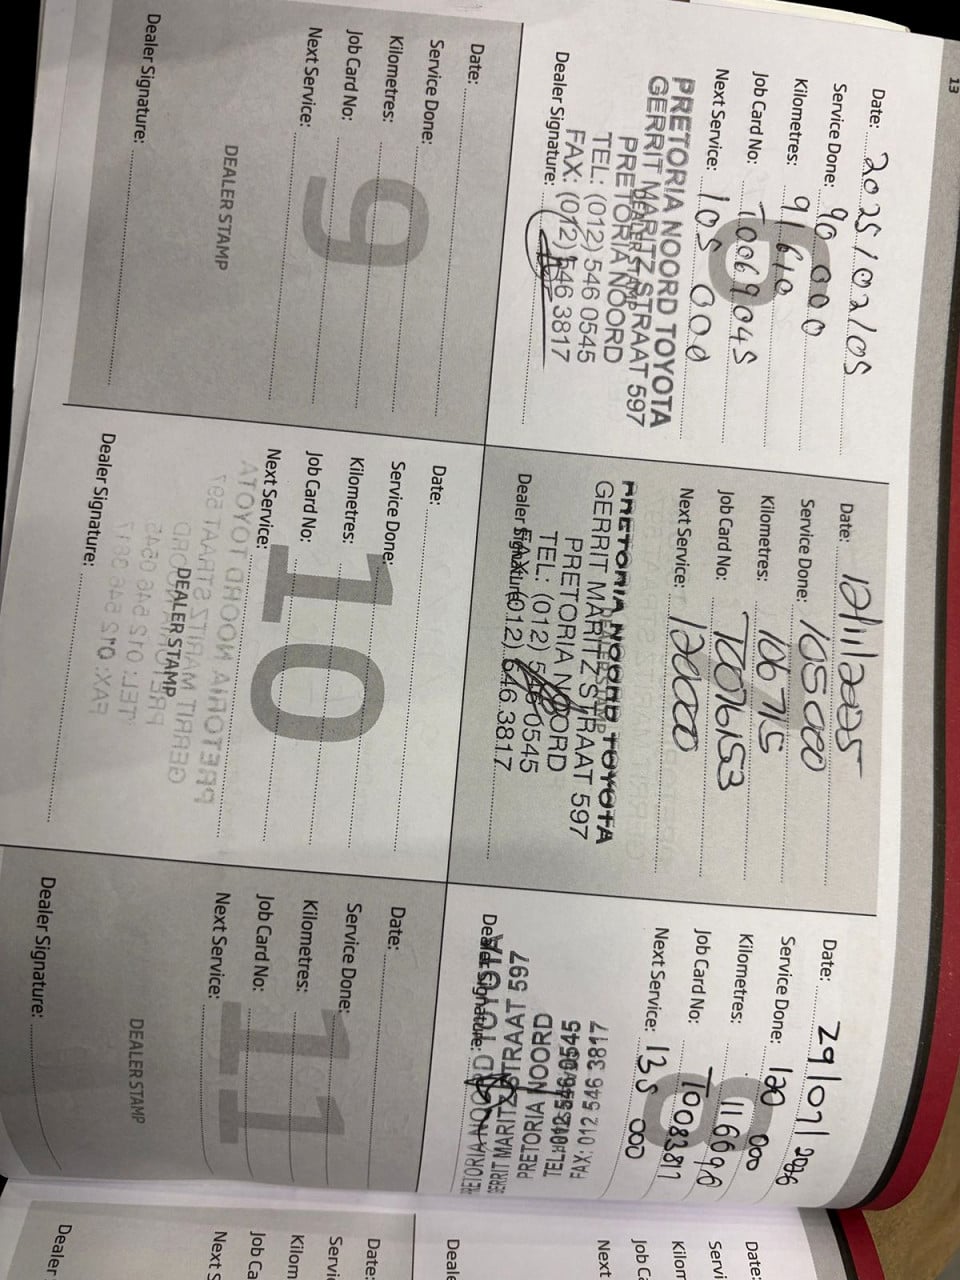 13
Date: 2025/02/05
Service Done: 90 000
Kilometres: 91610
Job Card No: T0069045
Next Service: 105 000
6
DEALER STAMP
PRETORIA NOORD TOYOTA
GERRIT MARITZ STRAAT 597
PRETORIA NOORD
TEL: (012) 546 0545
FAX: (012) 546 3817
Dealer Signature:
Date: 12/11/2025
Service Done: 105000
Kilometres: 106715
Job Card No: T0076153
Next Service: 120000
DEALER STAMP
PRETORIA NOORD TOYOTA
GERRIT MARITZ STRAAT 597
PRETORIA NOORD
TEL: (012) 546 0545
FAX: (012) 546 3817
Dealer Signature:
Date: 29/07/2026
Service Done: 120 000
Kilometres: 116696
Job Card No: T0083817
Next Service: 135 000
8
FAX: 012 546 3817
PRETORIA NOORD
GERRIT MARITZ STRAAT 597
PRETORIA NOORD TOYOTA
Dealer Signature:
Date:
Service Done:
Kilometres:
Job Card No:
Next Service:
9
DEALER STAMP
Dealer Signature:
Date:
Service Done:
Kilometres:
Job Card No:
Next Service:
10
DEALER STAMP
Dealer Signature:
Date:
Service Done:
Kilometres:
Job Card No:
Next Service:
11
DEALER STAMP
Dealer Signature:
Date:
Servi
Kilom
Job Ca
Next
Deale
Date:
Servi
Kilom
Job Ca
Next S
Dealer